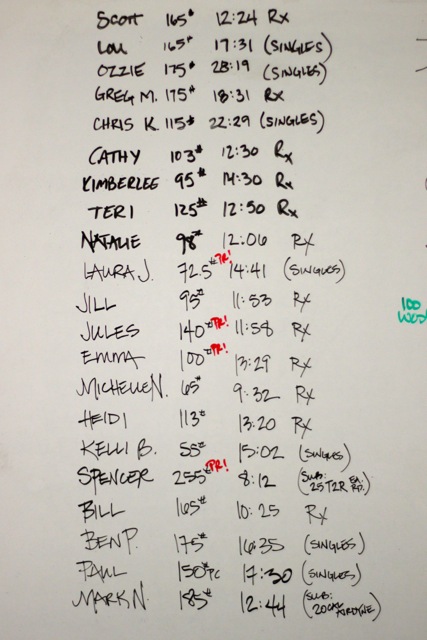 Scott 165# 12:24 Rx
Lou 165# 17:31 (SINGLES)
OZZIE 175# 28:19 (SINGLES)
GREG M. 175# 18:31 Rx
CHRIS K. 115# 22:29 (SINGLES)
CATHY 103# 12:30 Rx
KIMBERLEE 95# 14:30 Rx
TERI 125# 12:50 Rx
NATALIE 98# 12:06 RX
LAURA J. 72.5# PR! 14:41 (SINGLES)
JILL 95# 11:53 RX
JULES 140# PR! 11:58 RX
EMMA 100# PR! 13:29 RX
MICHELLE N. 65# 9:32 RX
HEIDI 113# 13:20 RX
KELLI B. 55# 15:02 (SINGLES)
SPENCER 255# PR! 8:12 (SUB: 25 T2R EA. RD.)
BILL 165# 10:25 RX
BEN P. 175# 16:35 (SINGLES)
PAUL 150# PC 17:30 (SINGLES)
MARK N. 185# 12:44 (SUB: 20 CAL AIRDYNE)
100